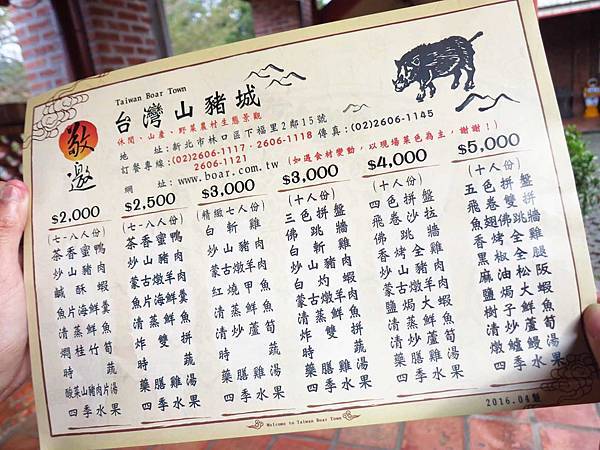 Taiwan Boar Town
台灣山豬城
敬邀
休閒、山產、野菜農村生態景觀
地址:新北市林口區下福里2鄰15號
訂餐專線:(02)2606-1117、2606-1118 傳真:(02)2606-1145
2606-1121
網址:www.boar.com.tw
(如遇食材變動,以現場菜色為主,謝謝!)
$2,000
(七-八人份)
茶香蜜鴨
炒山豬肉
鹹酥蝦
魚片海鮮羹
清蒸鮮魚
燜桂竹筍
時蔬
酸菜山豬肉片湯
四季水果
$2,500
(七-八人份)
茶香蜜鴨
炒山豬肉
蒙古燉羊肉
魚片海鮮羹
清蒸鮮魚
炸雙拼
時蔬
藥膳雞湯
四季水果
$3,000
(精緻七人份)
白斬雞
炒山豬肉
蒙古燉羊肉
紅燒甲魚
清蒸鮮魚
清炒蘆筍
時蔬
藥膳雞湯
四季水果
$3,000
(十人份)
三色拼盤
佛跳牆
白斬雞
炒山豬肉
白灼蝦
蒙古燉羊肉
清蒸鮮魚
炸雙拼
時蔬
藥膳雞湯
四季水果
$4,000
(十人份)
四色拼盤
飛卷沙拉
佛跳牆
香烤全雞
炒山豬肉
蒙古燉羊肉
鹽焗大蝦
清蒸鮮魚
清炒蘆筍
藥膳雞湯
四季水果
$5,000
(十人份)
五色拼盤
飛卷雙拼
魚翅佛跳牆
香烤全雞
黑椒全腿
麻油松阪
鹽焗大蝦
樹子鮮魚
清炒蘆筍
燉鱸鰻湯
四季水果
2016.04製
Welcome to Taiwan Boar Town